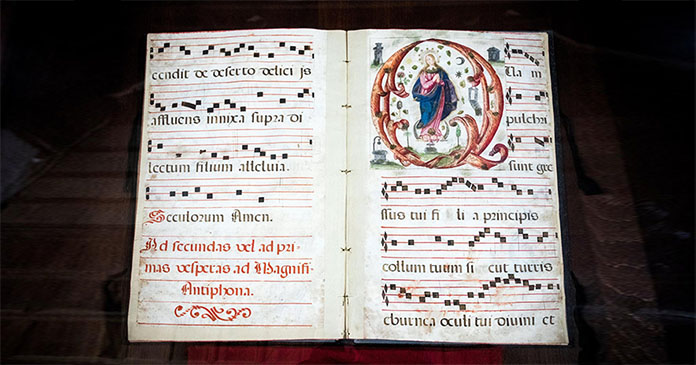 cendit de deserto delicijs
affluens innixa supra di
lectum filium alleluia.
Seculorum Amen.
Ad secundas vel ad pri-
mas vesperas ad Magnifi-
Antiphona.
Q
uam
pulchri
sunt gre
ssus tui fi li a principis
collum tuum si cut turris
eburnea oculi tui divini et